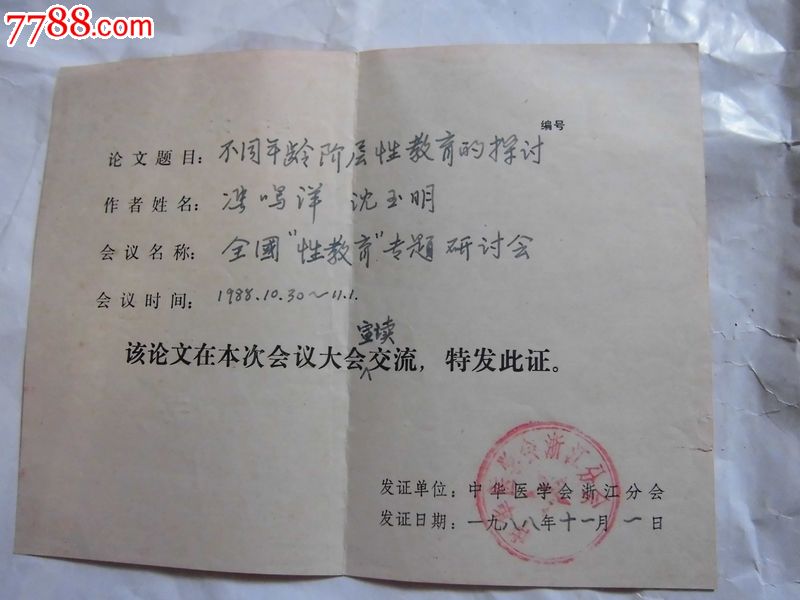 7788.com
编号
论文题目：不同年龄阶层性教育的探讨
作者姓名：凌鸣洋 沈玉明
会议名称：全國"性教育"专题研讨会
会议时间：1988.10.30～11.1.
宣读
该论文在本次会议大会交流，特发此证。
中华医学会浙江分会
发证单位：中华医学会浙江分会
发证日期：一九八八年十一月一日